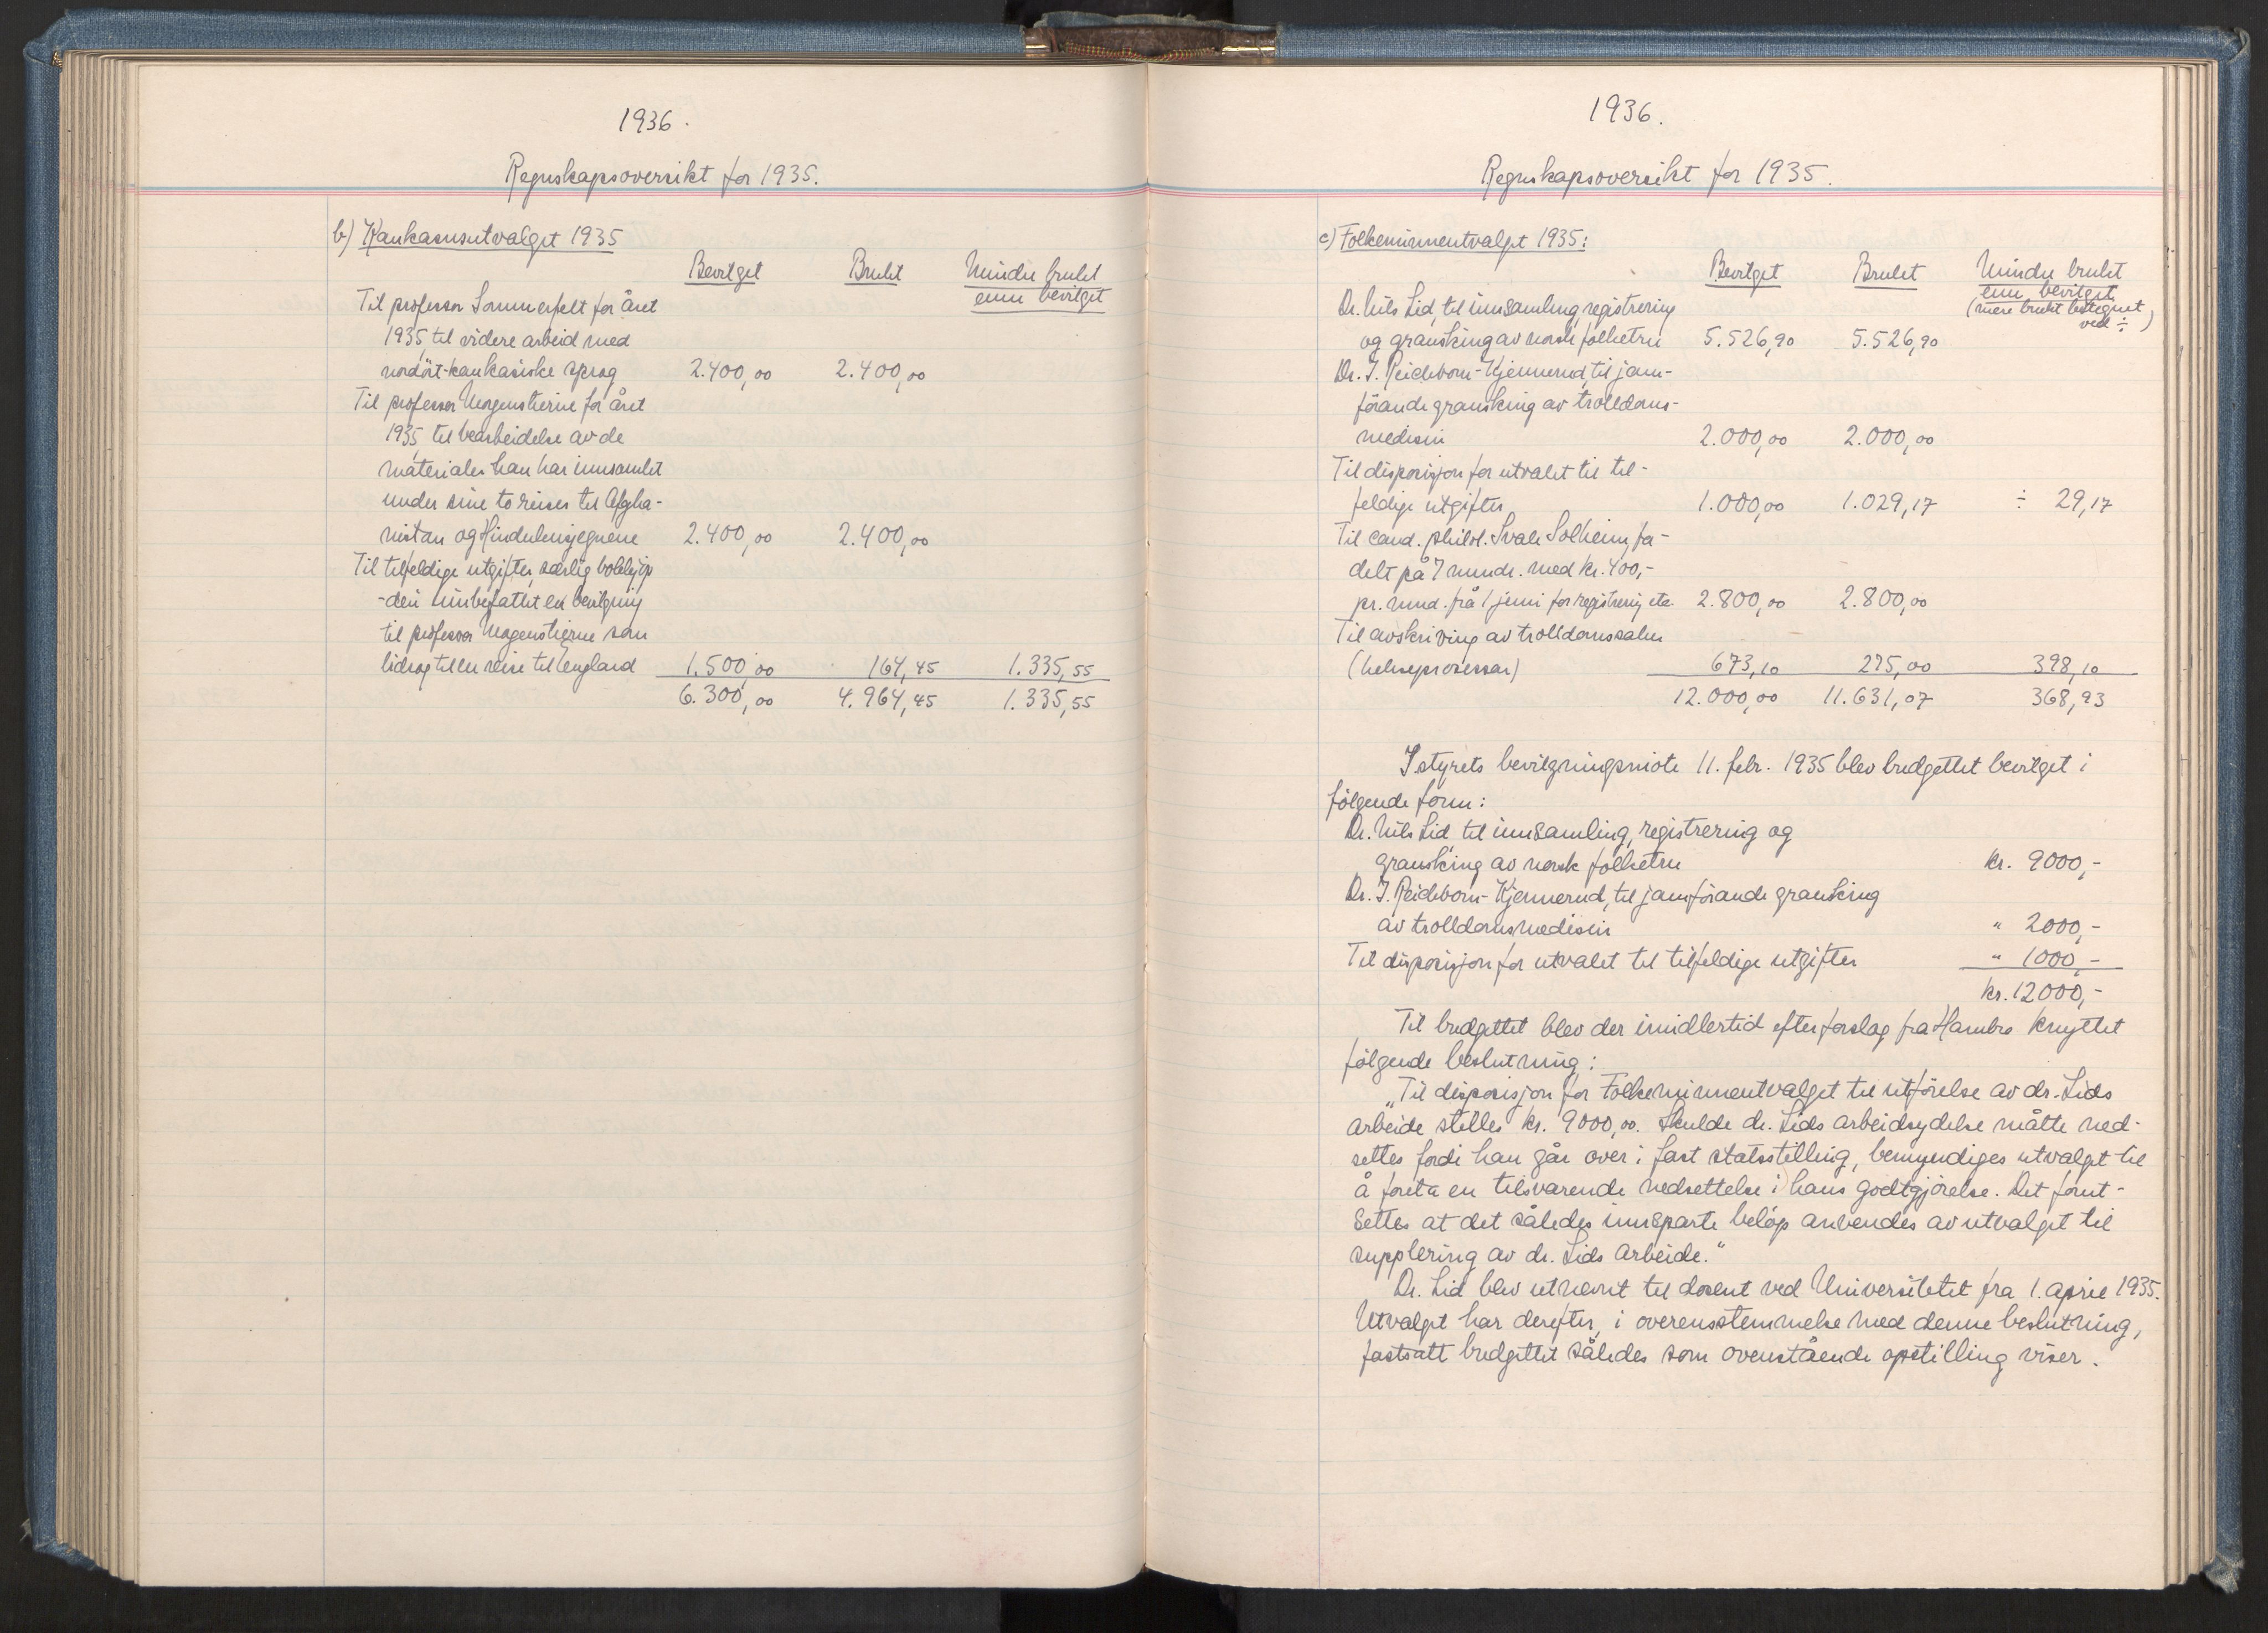 1936.
Regnskapsoversikt for 1935.
b) Kaukasusutvalget 1935
Bevilget Brukt Mindre brukt
enn bevilget
Til professor Sommerfelt for året
1935, til videre arbeid med
nordöst-kaukasiske sprog 2.400,00 2.400,00
Til professor Morgenstierne for året
1935, til bearbeidelse av de
materialer han har innsamlet
under sine to reiser til Afgha-
nistan og Hindukusjegnene 2.400,00 2.400,00
Til tilfeldige utgifter, særlig bokkjöp
-deri innbefattet en bevilgning
til professor Morgenstierne som
bidrag til en reise til England 1.500,00 164,45 1.335,55
6.300,00 4.964,45 1.335,55
1936.
Regnskapsoversikt for 1935.
c) Folkeminneutvalget 1935:
Bevilget Brukt Mindre brukt
enn bevilget
(mere brukt betegnet
ved ÷)
Dr. Nils Lid, til innsamling, registrering
og gransking av norsk folketru 5.526,90 5.526,90
Dr. I. Reichborn-Kjennerud, til jam-
förande gransking av trolldoms-
medisin 2.000,00 2.000,00
Til disposisjon for utvalet til til-
feldige utgifter 1.000,00 1.029,17 ÷ 29,17
Til cand. philol. Svale Solheim, fa-
delt på 7 mndr. med kr. 400,-
pr. mnd. frå 1 juni for registrering etc. 2.800,00 2.800,00
Til avskriving av trolldomssaker
(hekseprosessar) 673,10 275,00 398,10
12.000,00 11.631,07 368,93
I styrets bevilgningsmöte 11. febr. 1935 blev budgettet bevilget i
fölgende form:
Dr. Nils Lid, til innsamling, registrering og
gransking av norsk folketru kr. 9000,-
Dr. I. Reichborn-Kjennerud, til jamförande gransking
av trolldomsmedisin " 2000,-
Til disposisjon for utvalet til tilfeldige utgifter " 1000,-
kr. 12000,-
Til budgettet blev der imidlertid efter forslag fra Hambro knyttet
fölgende beslutning:
„Til disposisjon for Folkeminneutvalget til utförelse av dr. Lids
arbeide stilles kr. 9000,00. Skulde dr. Lids arbeidsydelse måtte ned-
settes fordi han går over i fast statsstilling, bemyndiges utvalget til
å foreta en tilsvarende nedsettelse i hans godtgjörelse. Det forut-
settes at det således innsparte belöp anvendes av utvalget til
supplering av dr. Lids arbeide."
Dr. Lid blev utnevnt til dosent ved Universitetet fra 1. april 1935.
Utvalget har derefter, i overensstemmelse med denne beslutning,
fastsatt budgettet således som ovenstående opstilling viser.